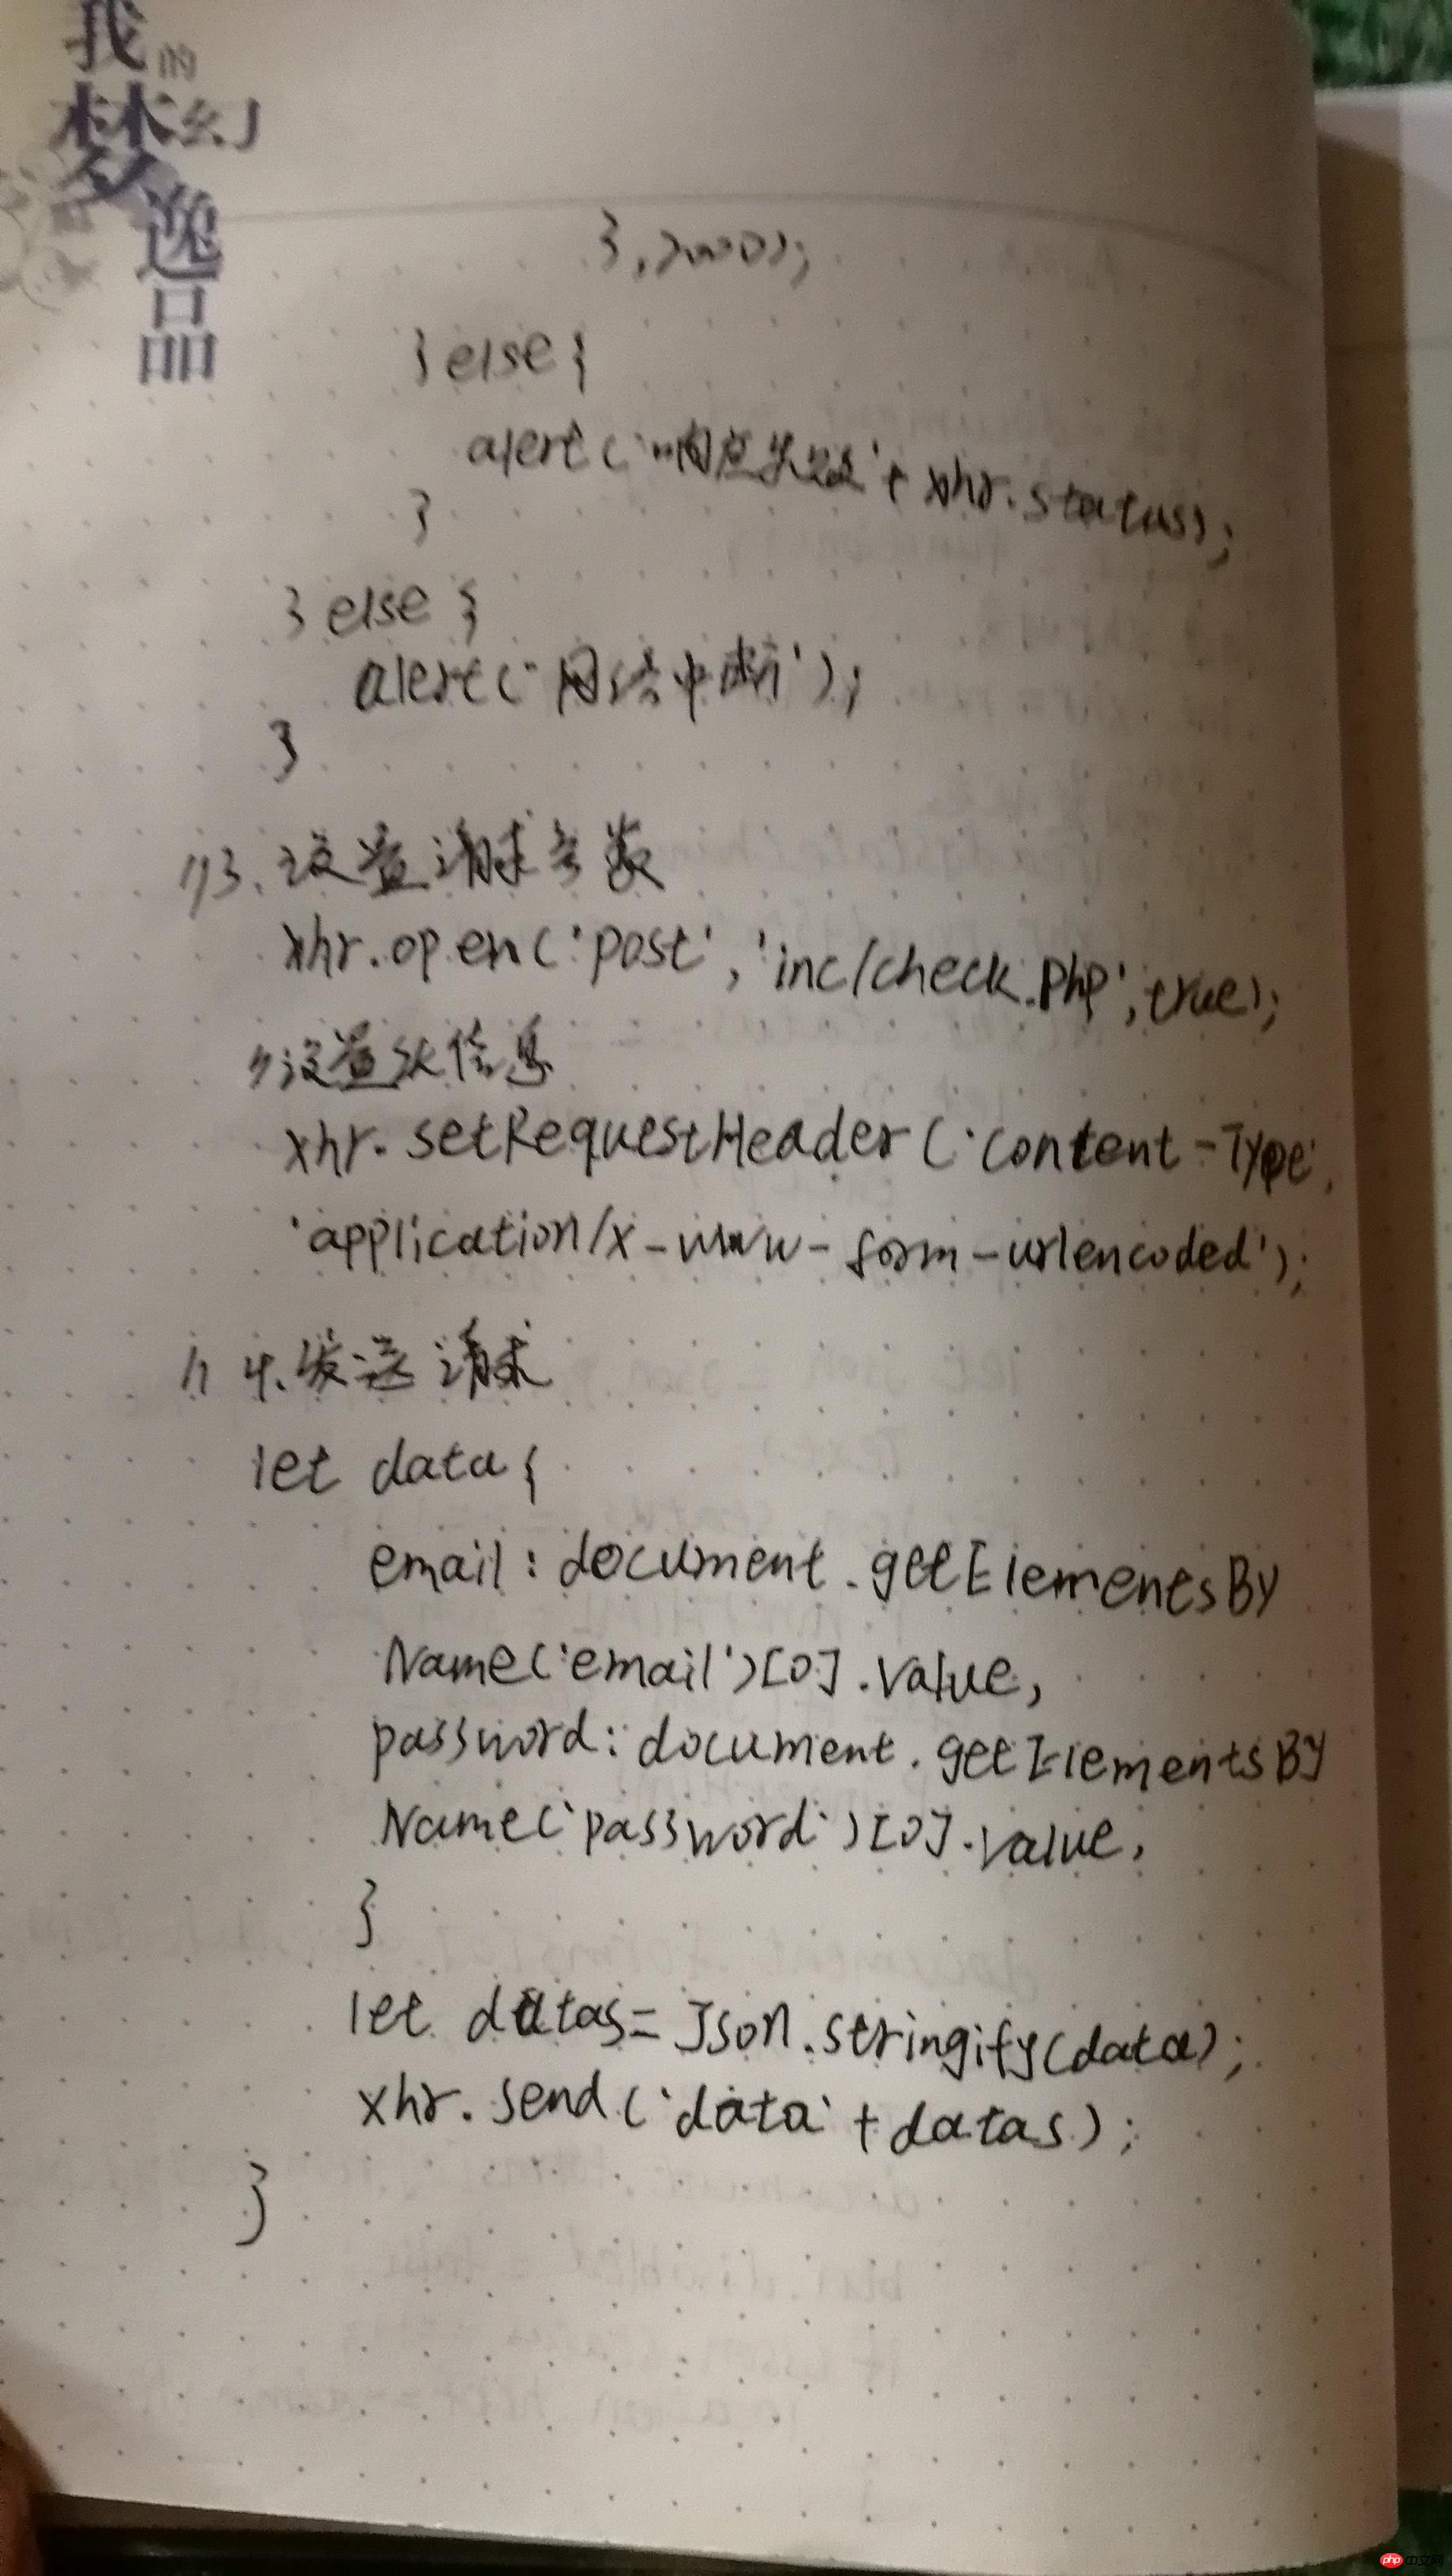 我的
梦幻
逸
品
},2000);
}else{
alert('响应失败'+xhr.status);
}
}else{
alert('网络中断');
}
//3.设置请求参数
xhr.open('post','inc/check.php',true);
//设置头信息
xhr.setRequestHeader('Content-Type',
'application/x-www-form-urlencoded');
//4.发送请求
let data{
email:document.getElementsBy
Name('email')[0].value,
password:document.getElementsBy
Name('password')[0].value,
}
let datas=Json.stringify(data);
xhr.send('data'+datas);
}
php 中文网